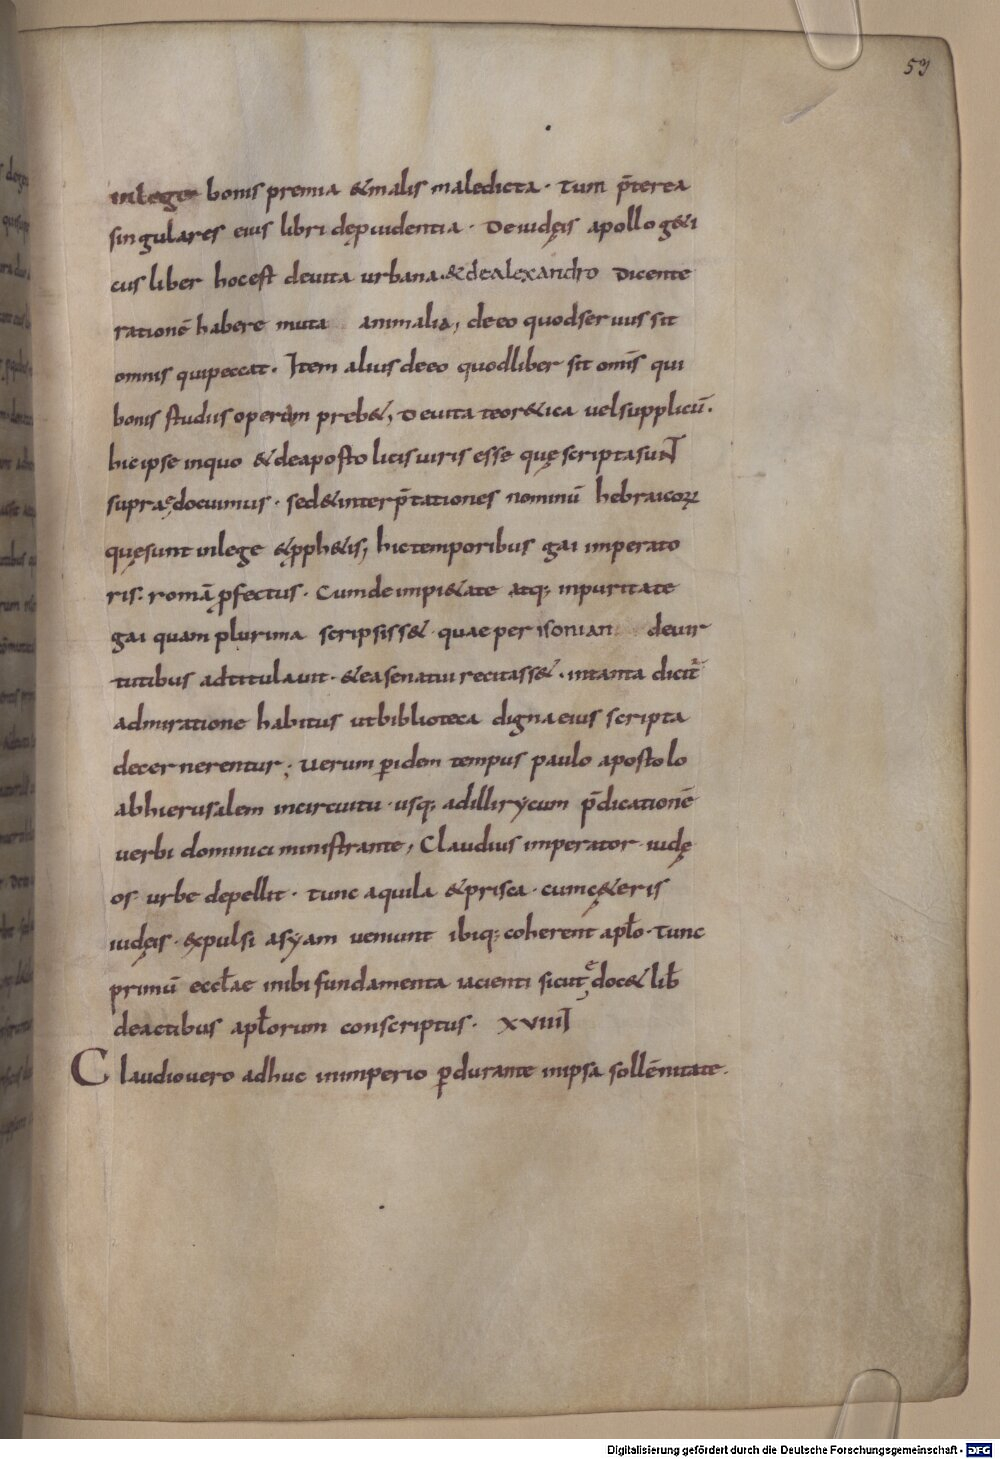 59
inlege bonis premia & malis maledicta · Tum p̄terea
singulares eius libri dęp̱uidentia · De iudęis apollog&i
cus liber hoc est deuita urbana · & de alexandro dicente
rationē habere muta animalia, deeo quod seruus sit
omnis qui peccat. Item alius deeo quod liber sit om̄is qui
bonis studiis operam preb&, De uita teor&ica uel supplicū.
hic ipse in quo & de apostolicis uiris esse quę scripta suNT
supra ędocuimus · sed & interp̄tationes nominū hebraicoꝝ
quęsunt inlege & p̱ph&is, hic temporibus gai imperato
ris. romā p̱fectus · Cum de impi&ate atq; inpuritate
gai quam plurima scripsiss& quae per isonian deuir
tutibus adtitulauit · & ea senatui recitass& · intanta dicit̄
admiratione habitus ut biblioteca digna eius scripta
decernerentur; Uerum ꝑ idem tempus paulo apostolo
abhierusalem incircuitu · usq; adillirycum p̄dicationē
uerbi dominici ministrante, Claudius imperator iudę
os urbe depellit · tunc aquila & prisca · cum c&̨eris
iudęis · expulsi asyam ueniunt ibiq; coherent apl̄o · Tunc
primū eccl̄ae inibi fundamenta iacienti sicut ędoc& lib̄
deactibus apl̄orum conscriptus · XVIIII
Claudio uero adhuc inimperio ꝑdurante inipsa sollēnitate.
Digitalisierung gefördert durch die Deutsche Forschungsgemeinschaft - DFG